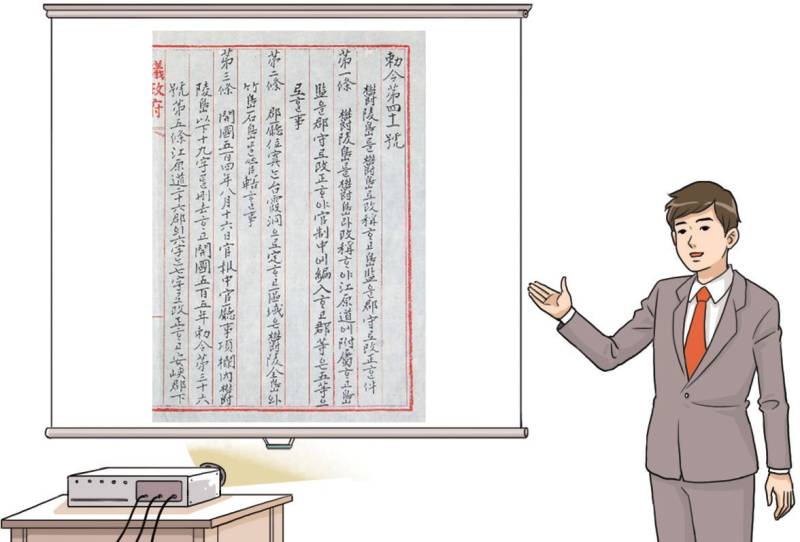 勅令第四十一號
欝陵島를欝島로改稱ᄒᆞ고島監을郡守로改正ᄒᆞᆫ件
第一條 欝陵島를欝島라改稱ᄒᆞ야江原道에附屬ᄒᆞ고島
監을郡守로改正ᄒᆞ야官制中에編入ᄒᆞ고郡等은五等으
로ᄒᆞᆯ事
第二條 郡廳位寘ᄂᆞᆫ台霞洞으로定ᄒᆞ고區域은欝陵全島와
竹島石島ᄅᆞᆯ管轄ᄒᆞᆯ事
第三條 開國五百四年八月十六日官報中官廳事項欄內欝
陵島以下十九字를刪去ᄒᆞ고開國五百五年勅令第三十六
號第五條江原道二十六郡의六字ᄂᆞᆫ七字로改正ᄒᆞ고安峽郡下
議政府